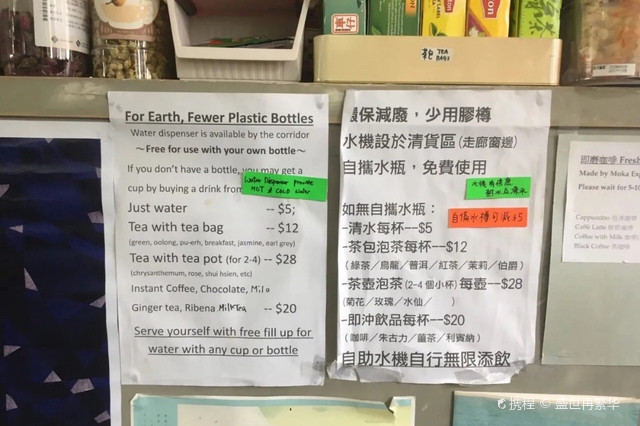 TEA
BAGS
For Earth, Fewer Plastic Bottles
Water dispenser is available by the corridor
~Free for use with your own bottle~
If you don't have a bottle, you may get a
cup by buying a drink from
Water Dispenser provide
HOT & COLD water
Just water -- $5;
Tea with tea bag -- $12
(green, oolong, pu-erh, breakfast, jasmine, earl grey)
Tea with tea pot (for 2-4) -- $28
(chrysanthemum, rose, shui hsien, etc)
Instant Coffee, Chocolate, Milo
Ginger tea, Ribena Milk Tea -- $20
Serve yourself with free fill up for
water with any cup or bottle
環保減廢，少用膠樽
水機設於清貨區(走廊窗邊)
自攜水瓶，免費使用
如無自攜水瓶：
自攜水樽可減$5
-清水每杯--$5
-茶包泡茶每杯--$12
(綠茶/烏龍/普洱/紅茶/茉莉/伯爵)
-茶壺泡茶(2-4 個小杯) 每壺--$28
(菊花/玫瑰/水仙/ )
-即沖飲品每杯--$20
(咖啡/朱古力/薑茶/利賓納)
自助水機自行無限添飲
即磨咖啡 Fresh
Made by Moka Exp
Please wait for 5-
Cappuccino
Caffé Latte
Coffee with Milk
Black Coffee
携程 © 盛世再繁华